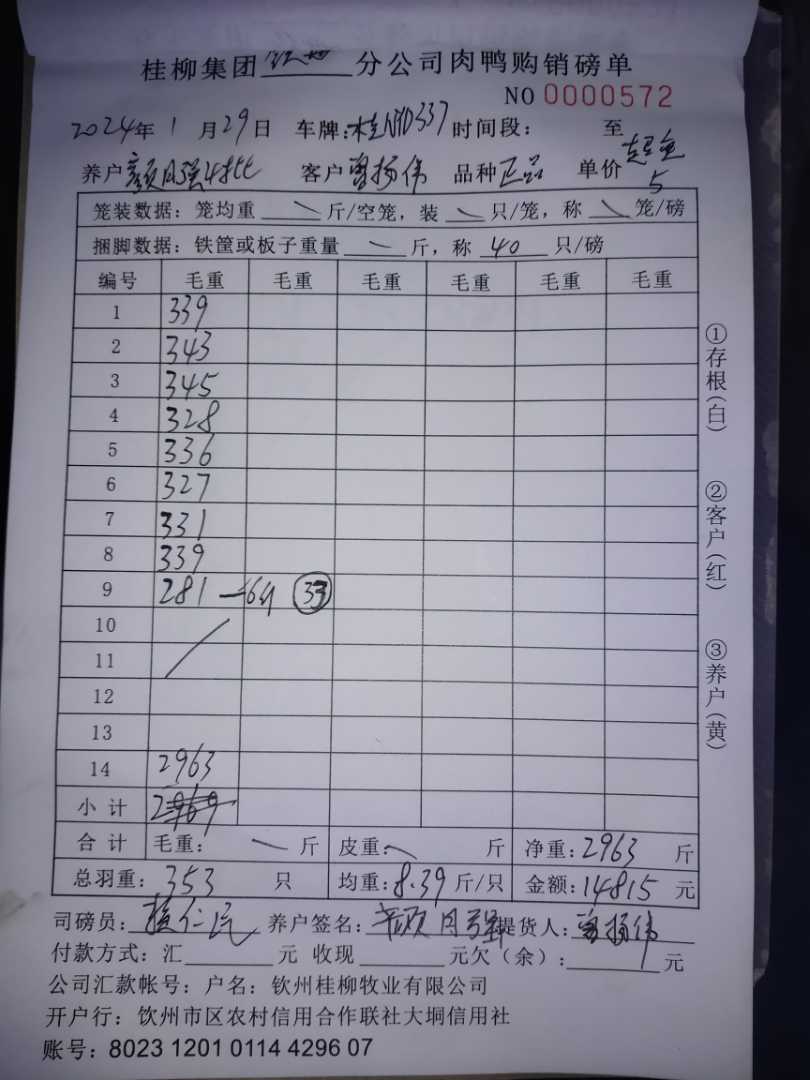 桂柳集团钦州分公司肉鸭购销磅单
NO 0000572
2024年1月29日 车牌:桂N 337 时间段: 至
养户颜月强4批 客户曾扬伟 品种正品 单价 5
笼装数据:笼均重 斤/空笼,装 只/笼,称 笼/磅
捆脚数据:铁筐或板子重量 一 斤,称 40 只/磅
编号 毛重 毛重 毛重 毛重 毛重 毛重
1 339
2 343
3 345
4 328
5 336
6 327
7 331
8 339
9 281 33
10
11
12
13
14 2963
小计 2969
合计 毛重: 一 斤 皮重: 斤 净重:2963 斤
总羽重: 353 只 均重:8.39 斤/只 金额:14815 元
司磅员: 养户签名: 颜月强 提货人: 曾扬伟
付款方式:汇 元 收现 元欠(余): 元
公司汇款帐号:户名:钦州桂柳牧业有限公司
开户行:饮州市区农村信用合作联社大垌信用社
账号:8023 1201 0114 4296 07
①存根(白)
②客户(红)
③养户(黄)